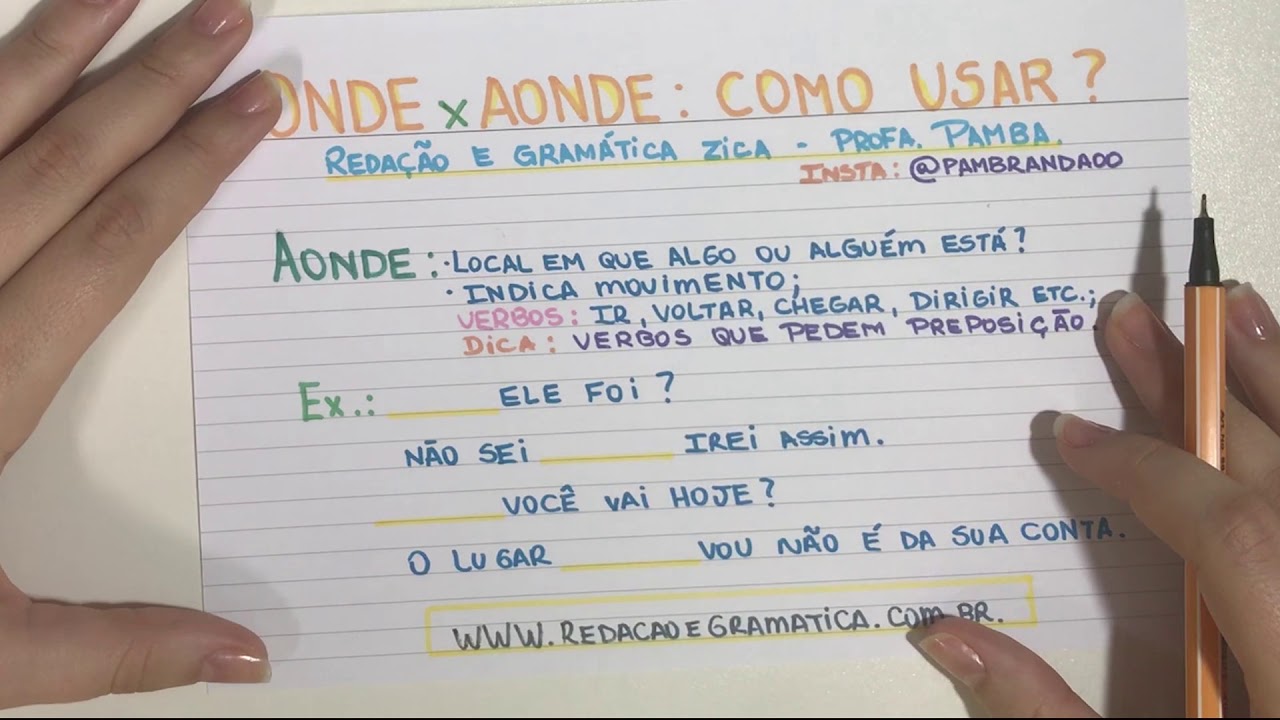 ONDE x AONDE: COMO USAR?
REDAÇÃO E GRAMÁTICA ZICA - PROFA. PAMBA.
INSTA: @PAMBRANDAOO
AONDE: ·LOCAL EM QUE ALGO OU ALGUÉM ESTÁ?
· INDICA MOVIMENTO;
VERBOS: IR, VOLTAR, CHEGAR, DIRIGIR ETC.;
DICA: VERBOS QUE PEDEM PREPOSIÇÃO.
EX.: ______ ELE FOI?
NÃO SEI ______ IREI ASSIM.
______ VOCÊ VAI HOJE?
O LUGAR ______ VOU NÃO É DA SUA CONTA.
WWW.REDACAOEGRAMATICA.COM.BR.